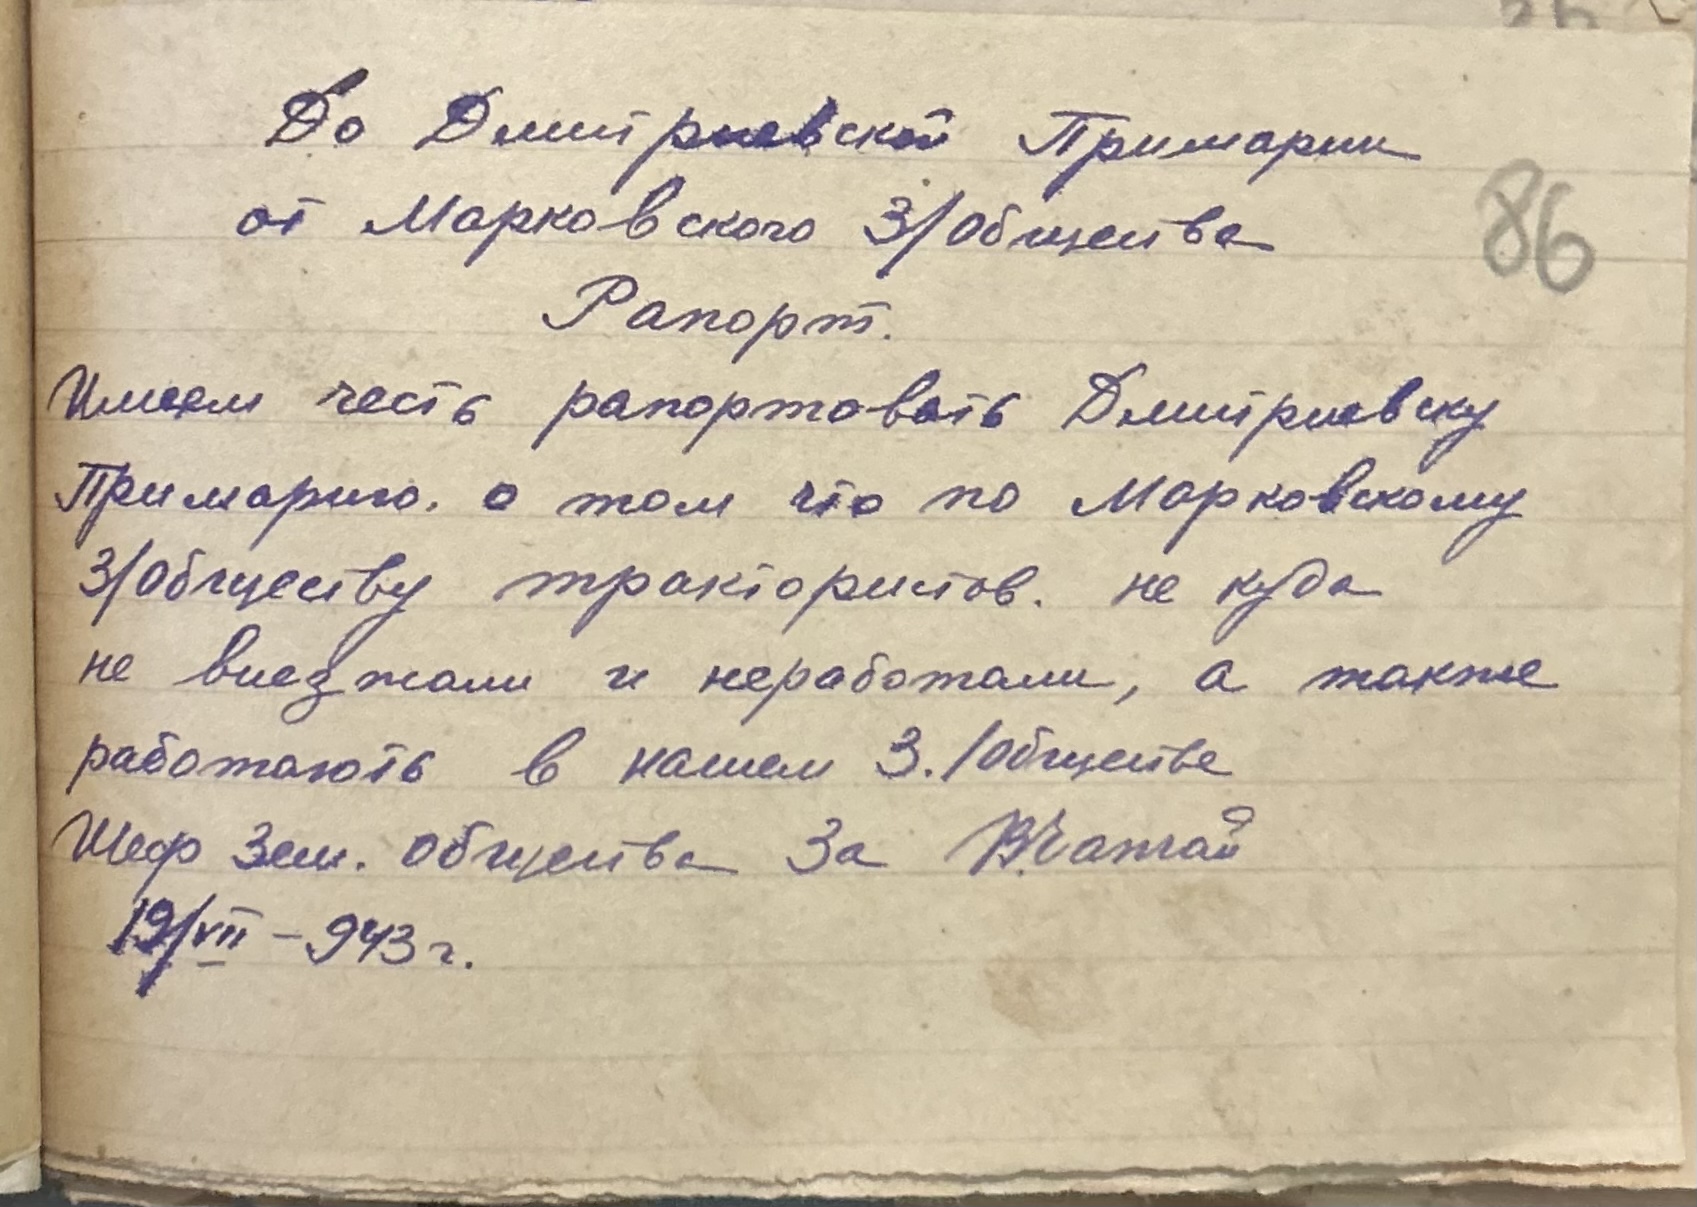 До Дмитриевской Примарии
от Марковского З/Общества
86
Рапорт.
Имеем честь рапортовать Дмитриевску
Примарию. о том что по Марковскому
З/Обществу трактористов. не куда
не виезжали и неработали, а также
работають в нашем З./Обществе
Шеф Зем. Общества За
19/VII – 943 г.